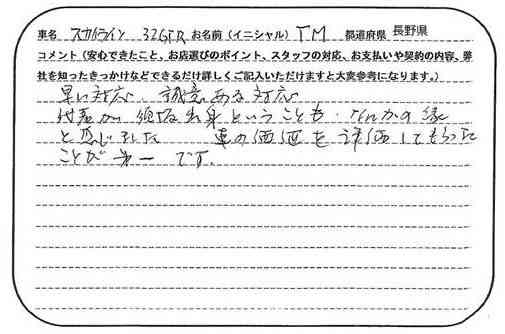 車名 スカイライン 32GTR お名前(イニシャル) TM 都道府県 長野県
コメント(安心できたこと、お店選びのポイント、スタッフの対応、お支払いや契約の内容、弊
社を知ったきっかけなどできるだけ詳しくご記入いただけますと大変参考になります。)
早い対応 誠意ある対応
代表が 須坂出身ということも なんかの縁
と感じました 車の価値を評価してもらった
ことが 第一 です。